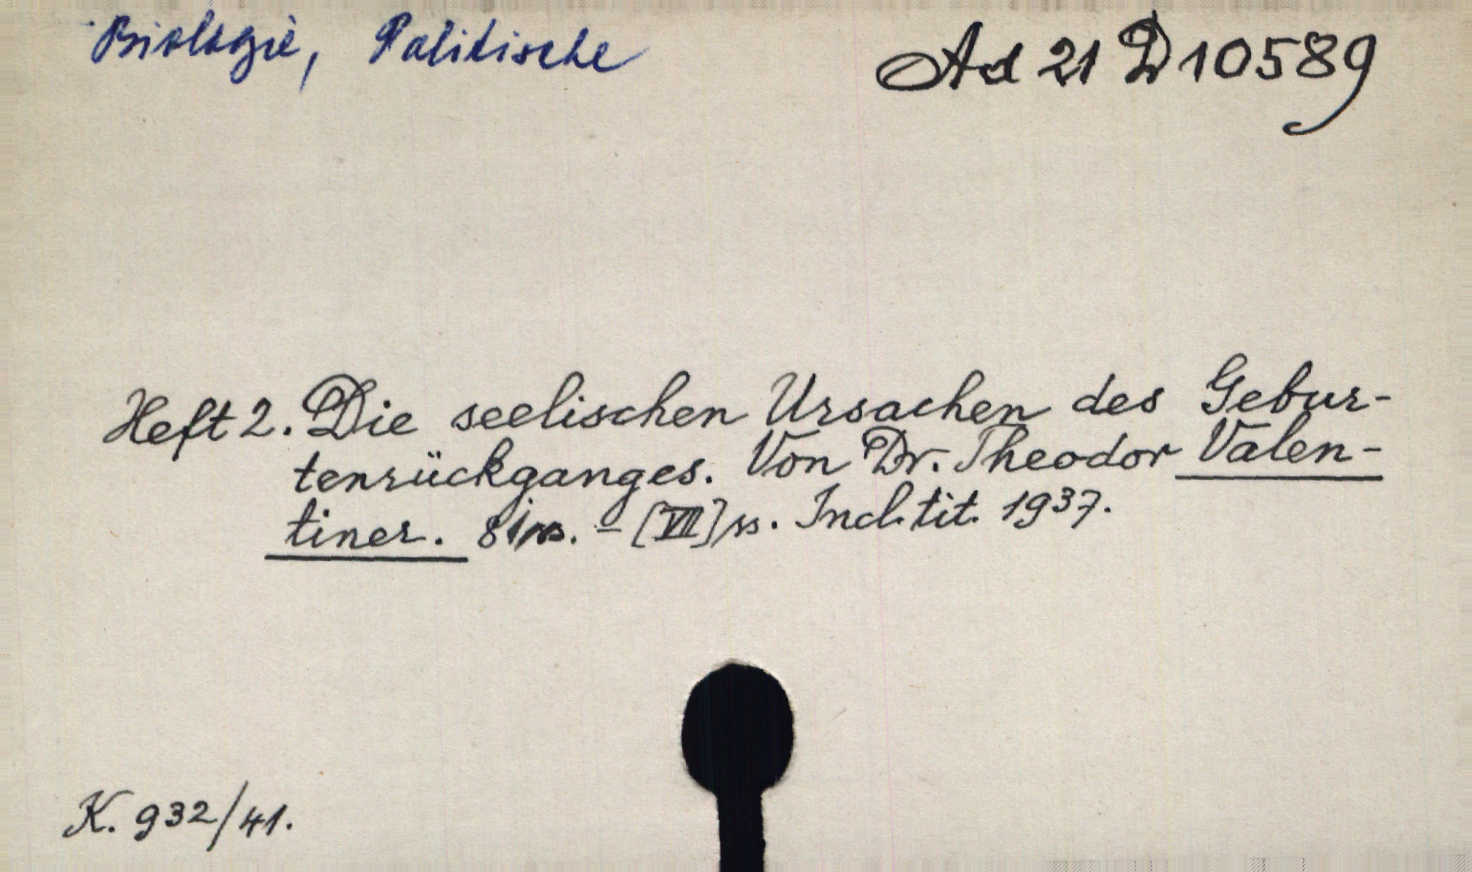 Biologie, Politische
Ad 21 D 10589
Heft 2. Die seelischen Ursachen des Gebur-
tenrückganges. Von Dr. Theodor Valen-
tiner. - [VII] ss. Incl. tit. 1937.
K. 932/41.